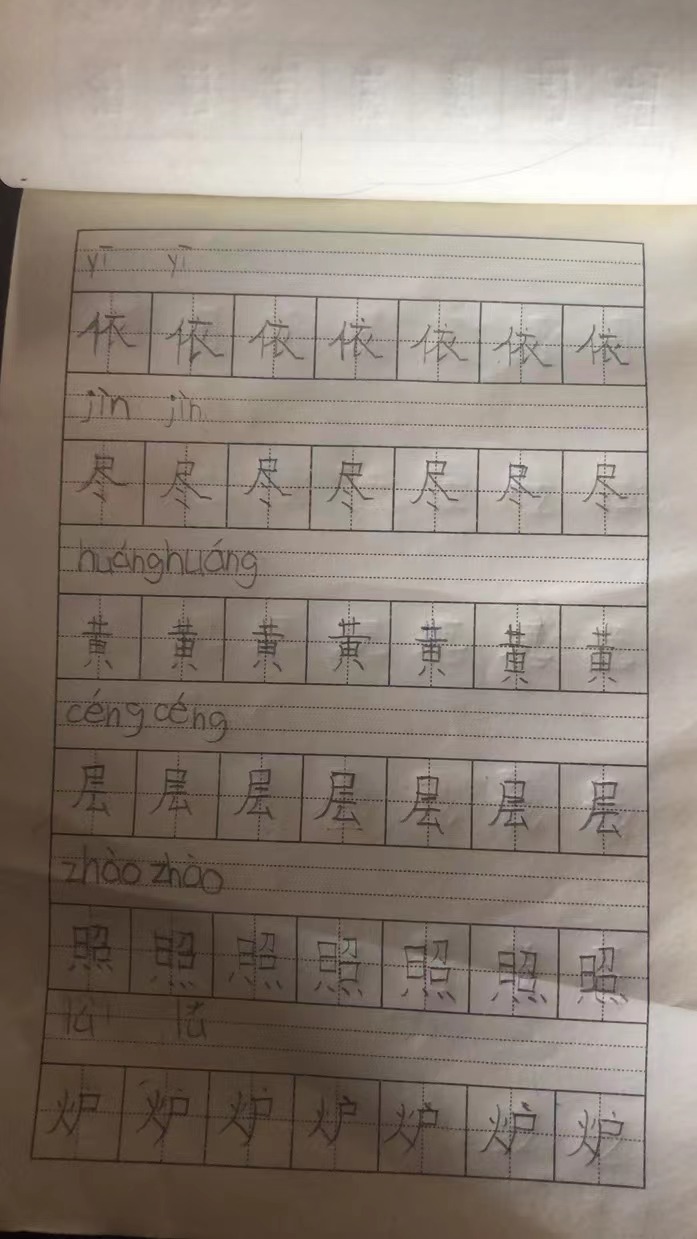 yī yī
依 依 依 依 依 依 依
jìn jìn
尽 尽 尽 尽 尽 尽 尽
huánghuáng
黄 黄 黄 黄 黄 黄 黄
céng céng
层 层 层 层 层 层 层
zhào zhào
照 照 照 照 照 照 照
lú lú
炉 炉 炉 炉 炉 炉 炉